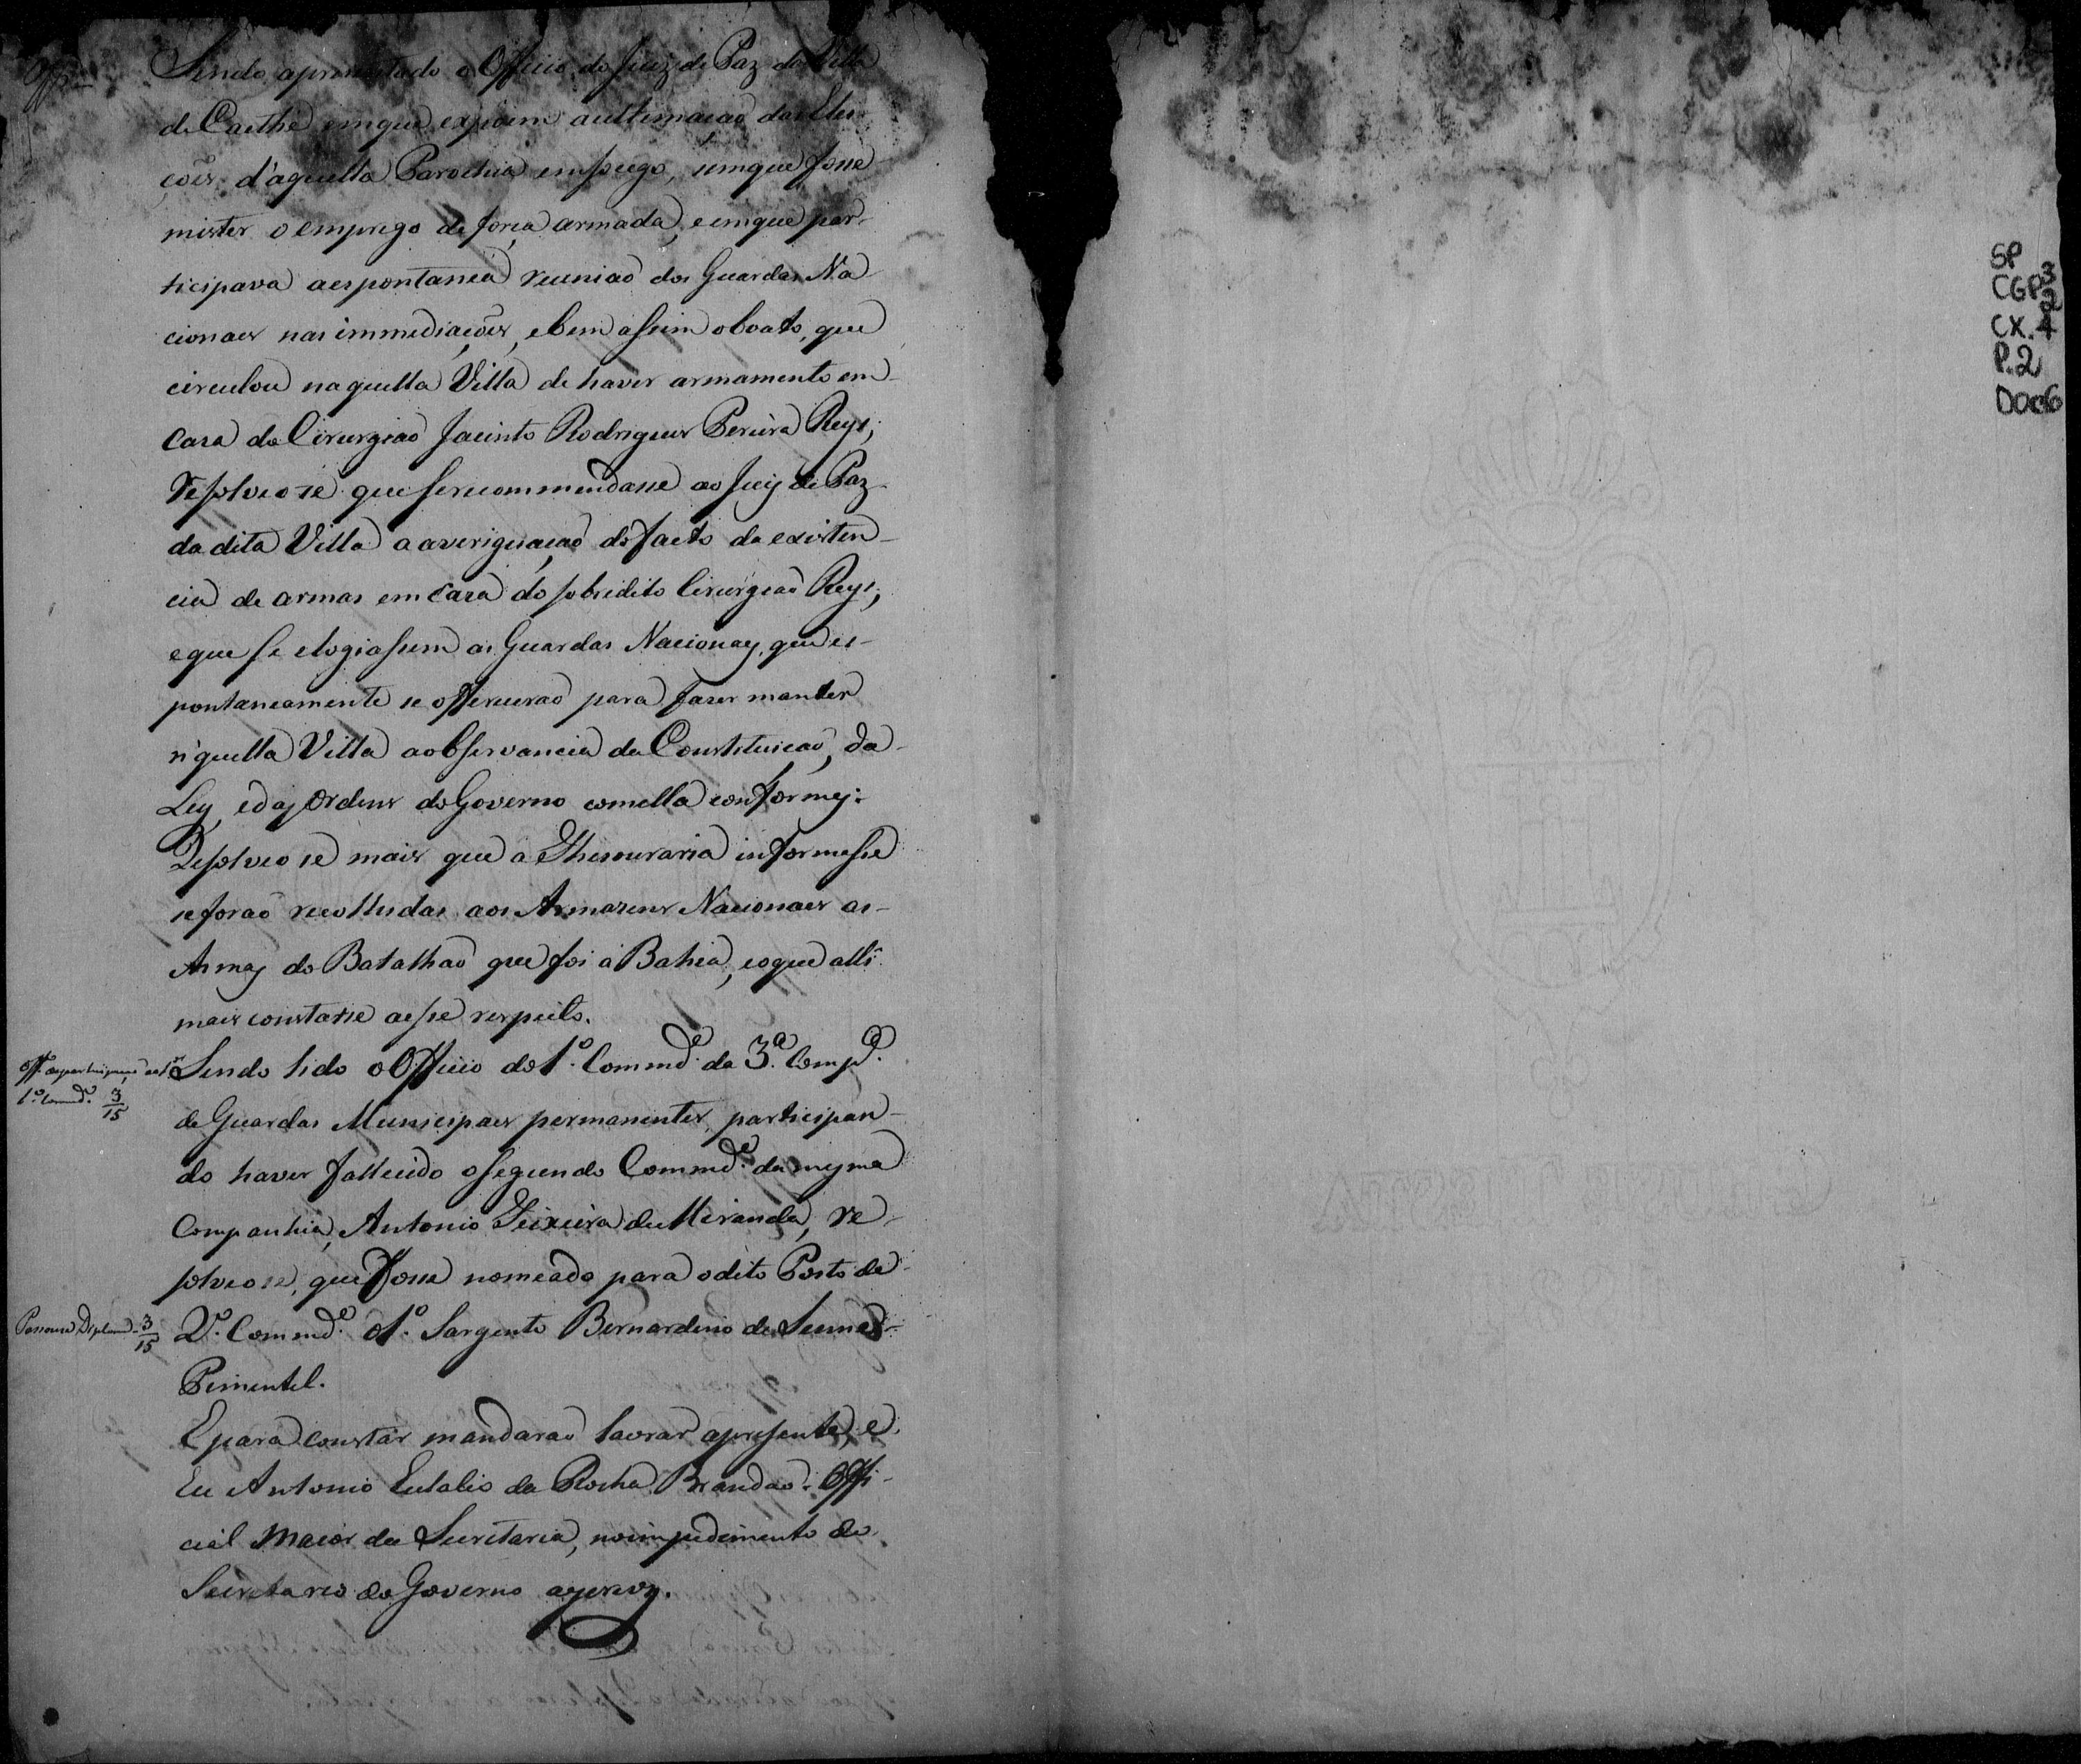 Off.
Sendo apresentado o Officio do Juiz de Paz da Villa
de Caethe emque expoem a ultimação das Elei-
ções d'aquella Parochia em socego, semque fosse
mister o emprego de força armada, e emque par-
ticipava a espontanea reunião dos Guardas Na-
cionaes nas immediações, e bem assim o boato, que
circulou naquella Villa de haver armamento em
casa do Cirurgião Jacinto Rodrigues Pereira Reys;
Resolveo se que se recommendasse ao Juiz de Paz
da dita Villa a averiguação do facto da existen-
cia de armas em casa do sobredito Cirurgião Reys;
e que se elogiassem as Guardas Nacionaes, que es-
pontaneamente se offerecerão para fazer manter
n'quella Villa a observancia da Constituição, da
Ley, e das Ordens do Governo comella conformes:
Resolveo se mais que a Thesouraria informasse
se forão recolhidas aos Armazens Nacionaes as
Armas do Batalhão que foi á Bahia, e o que alli
mais constasse a esse respeito.
Off. ao
1.º Commd.e 3/15
Sendo lido o Officio do 1.º Commd.e da 3.ª Comp.a
de Guardas Municipaes permanentes, participan-
do haver fallecido o segundo Commd.e da mesma
Companhia, Antonio Teixeira de Miranda, re-
solveo se, que fosse nomeado para o dito Posto de
Passou se Diploma 3/15
2.º Commd.e o 1.º Sargento Bernardino de Senna
Pimentel.
E para constar mandarão lavrar a presente, e
Eu Antonio Eulalio da Rocha Brandão, Offi-
cial Maior da Secretaria, no impedimento do
Secretario do Governo a escrevy.
SP
CGP3
2
CX.4
P.2
DOC6